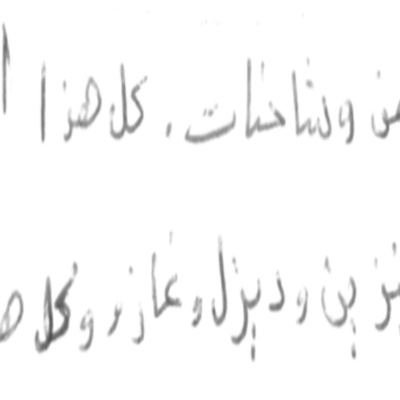 وشاحنات. كل هذا
بنزين وديزل وغاز وكل